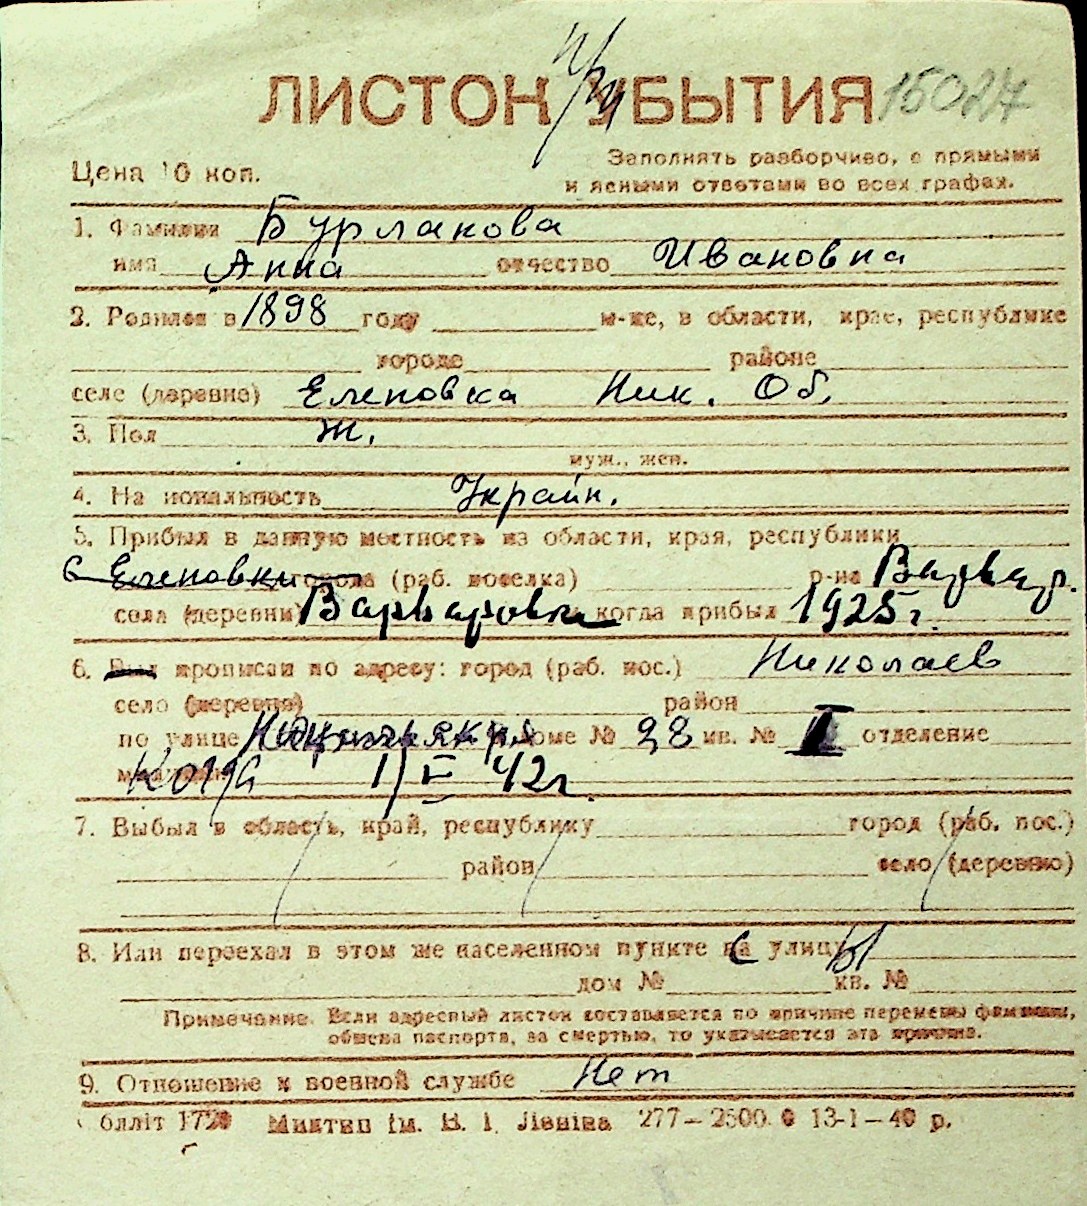 ЛИСТОК УБЫТИЯ 15027
При
Цена 10 коп.
Заполнять разборчиво, с прямыми
и ясными ответами во всех графах.
1. Фамилия Бурлакова
имя Анна отчество Ивановна
2. Родился в 1898 году м-це, в области, крае, республике
городе районе
селе (деревне) Еленовка Ник. Об.
3. Пол Ж.
муж., жен.
4. Национальность Украин.
5. Прибыл в данную местность из области, края, республики
с Еленовки города (раб. поселка) р-на Варвар.
села (деревни) Варваровки когда прибыл 1925 г.
6. Был прописан по адресу: город (раб. пос.) Николаев
село (деревня) район
по улице доме № 98 кв. № отделение
милиции Когда 1/V 42 г.
7. Выбыл в область, край, республику город (раб. пос.)
район село (деревню)
8. Или переехал в этом же населенном пункте на с улицу ы
дом № кв. №
Примечание. Если адресный листок составляется по причине перемены фамилии,
обмена паспорта, за смертью, то указывается эта причина.
9. Отношение к военной службе Нет
блліт 1720 Миктип ім. В. І. Леніна 277—2500. 13-1—40 р.